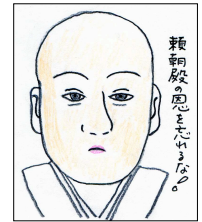 頼朝殿の恩を忘れるな!。